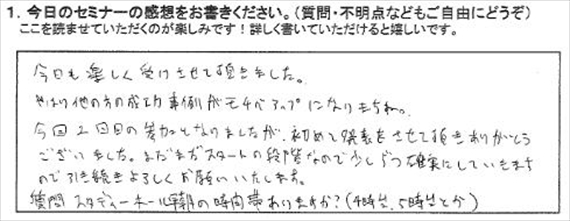 1. 今日のセミナーの感想をお書きください。(質問・不明点などもご自由にどうぞ)
ここを読ませていただくのが楽しみです！詳しく書いていただけると嬉しいです。
今日も楽しく受けさせて頂きました。
やはり他の方の成功事例がモチベアップになりますね。
今回2回目の参加となりましたが、初めて発表をさせて頂きありがとう
ございました。まだまだスタートの段階なので少しづつ確実にしていきます
ので引き続きよろしくお願いいたします。
質問 スタディーホール早朝の時間帯ありますか？(4時台、5時台とか)